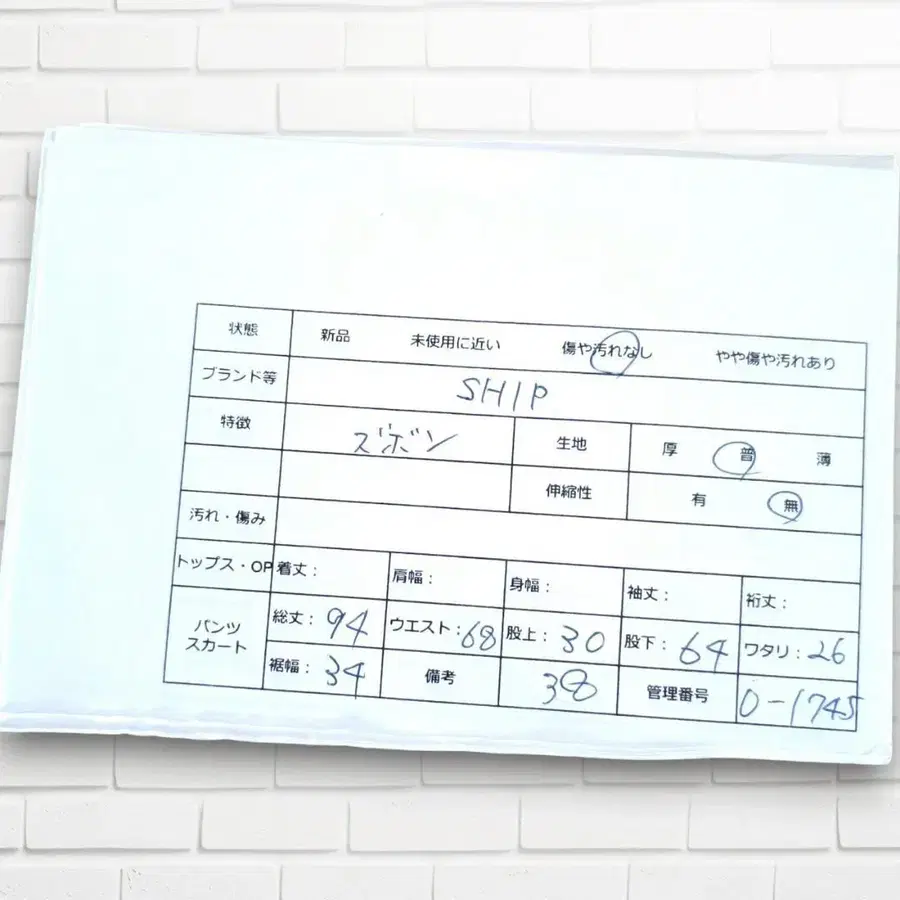 状態 新品 未使用に近い 傷や汚れなし やや傷や汚れあり
ブランド等 SHIP
特徴 ズボン 生地 厚 普 薄
伸縮性 有 無
汚れ・傷み
トップス・OP 着丈： 肩幅： 身幅： 袖丈： 裄丈：
パンツ
スカート
総丈：94 ウエスト：68 股上：30 股下：64 ワタリ：26
裾幅：34 備考 38 管理番号 0-1745